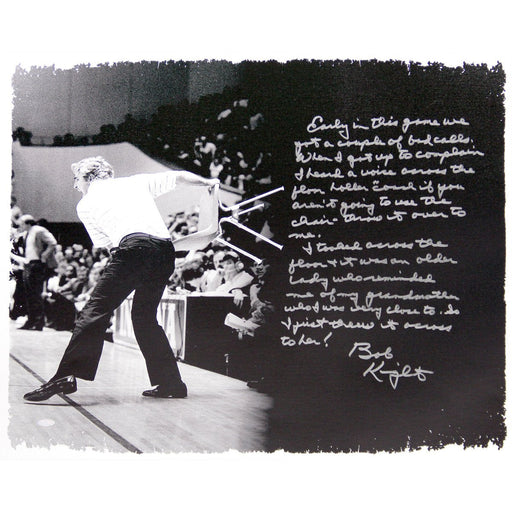 Early in this game we
got a couple of bad calls.
When I got up to complain
I heard a voice across the
floor holler Coach if you
aren't going to use the
chair throw it over to
me.
I looked across the
floor & it was an older
lady who reminded
me of my grandmother
who I was very close to. So
I just threw it across
to her!
Bob
Knight